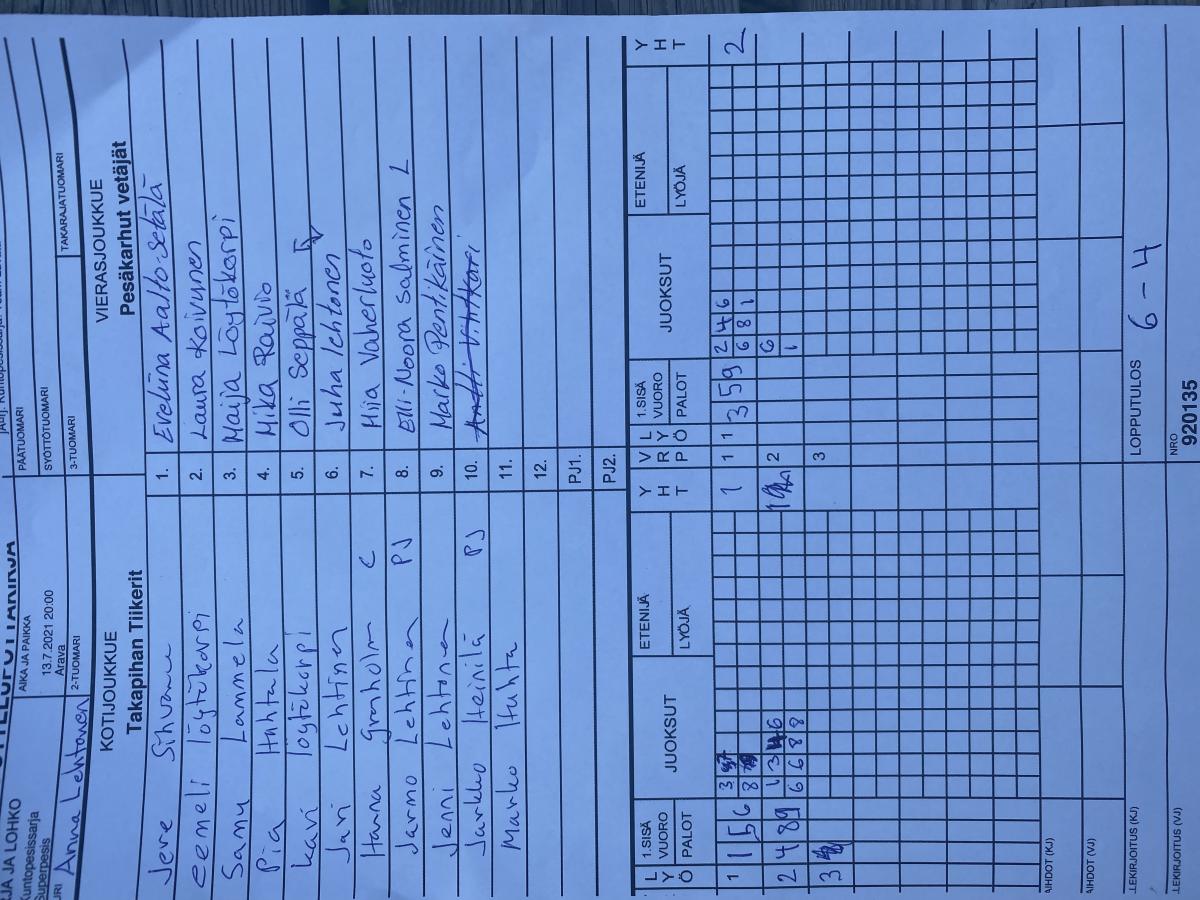 OTTELUPÖYTÄKIRJA
JA JA LOHKO
Kuntopesissarja
Superpesis
AIKA JA PAIKKA
13.7.2021 20:00
Arava
PÄÄTUOMARI
SYÖTTÖTUOMARI
Anna Lehtonen
2-TUOMARI
3-TUOMARI
TAKARAJATUOMARI
KOTIJOUKKUE
Takapihan Tiikerit
VIERASJOUKKUE
Pesäkarhut vetäjät
Jere 1. Eveliina Aalto-Setälä
Eemeli Löytökorpi 2. Laura Koivunen
Samu Lammela 3. Maija Löytökorpi
Pia Huhtala 4. Mika Raivio
Kari Löytökorpi 5. Olli Seppälä
Jari Lehtinen 6. Juha Lehtonen
Hanna Granholm C 7. Miia Vaherluoto
Jarmo Lehtinen PJ 8. Elli-Noora Salminen L
Jenni Lehtonen 9. Marko Pentikäinen
Jarkko Heinilä PJ 10. Antti Vihtkari
Marko Huhta 11.
12.
PJ1.
PJ2.
L Y Ö 1.SISÄ VUORO PALOT JUOKSUT ETENIJÄ LYÖJÄ Y H T V R P L Y Ö 1.SISÄ VUORO PALOT JUOKSUT ETENIJÄ LYÖJÄ Y H T
1 1 5 6 3 1 1 1 3 5 9 2 4 6 2
8 6 8 1
2 4 8 9 1 3 4 6 2 6
6 6 8 8 1
3 3
AIHDOT (KJ)
AIHDOT (VJ)
LEKIRJOITUS (KJ)
LOPPUTULOS 6 - 4
LEKIRJOITUS (VJ)
NRO
920135